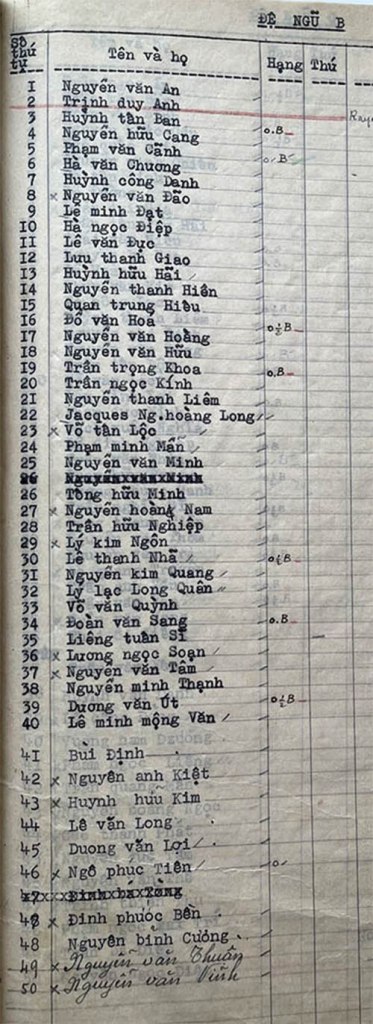 ĐỆ NGŨ B
Số thứ tự Tên và họ Hạng Thứ
1 Nguyễn văn An
2 Trịnh duy Anh
3 Huỳnh tấn Ban
4 Nguyễn hữu Cang o.B
5 Phạm văn Cãnh
6 Hà văn Chương o.B
7 Huỳnh công Danh
8 x Nguyễn văn Đão
9 Lê minh Đạt
10 Hà ngọc Điệp
11 Lê văn Đực
12 Lưu thanh Giao
13 Huỳnh hữu Hãi
14 Nguyễn thanh Hiền
15 Quan trung Hiếu
16 Đỗ văn Hoà o½B
17 Nguyễn văn Hoằng
18 Nguyễn văn Hữu
19 Trần trọng Khoa o.B
20 Trần ngọc Kính
21 Nguyễn thanh Liêm
22 Jacques Ng.hoàng Long
23 x Võ tấn Lộc
24 Phạm minh Mẫn
25 Nguyễn văn Minh
26 Nguyễn văn Minh
26 Tống hữu Minh
27 x Nguyễn hoàng Nam
28 Trần hữu Nghiệp
29 x Lý kim Ngôn
30 Lê thanh Nhã o½B
31 Nguyễn kim Quang
32 Lý lạc Long Quân
33 Võ văn Quỳnh
34 Đoàn văn Sang o.B
35 Liêng tuấn Sĩ
36 x Lương ngọc Soạn
37 x Nguyễn văn Tâm
38 Nguyễn minh Thạnh
39 Dương văn Út o½B
40 Lê minh mộng Văn
41 Bùi Định
42 x Nguyễn anh Kiệt
43 x Huynh hữu Kim
44 Lê văn Long
45 Duong văn Lợi
46 x Ngô phúc Tiên
47
48 x Đinh phước Bền
48 Nguyễn bỉnh Cường
49 x Nguyễn văn Thuân
50 x Nguyễn văn Vinh